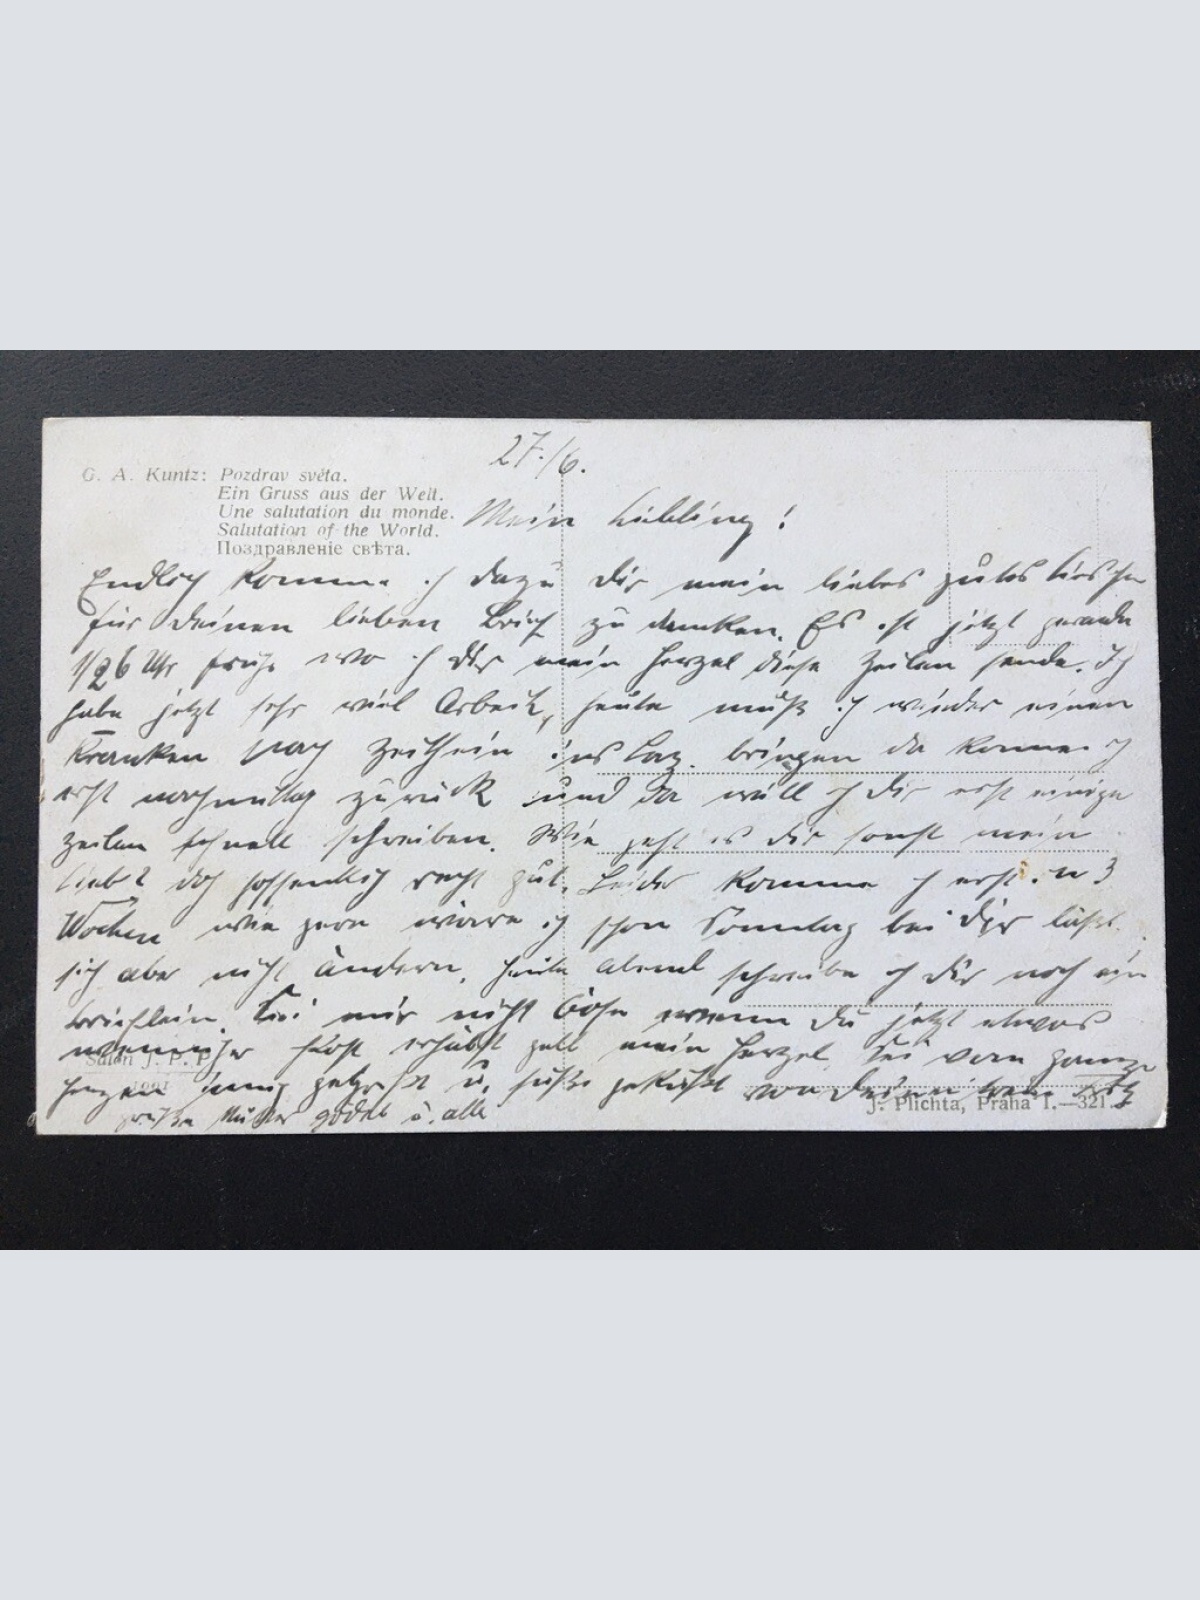 27./6.
G. A. Kuntz: Pozdrav světa.
Ein Gruss aus der Welt.
Une salutation du monde.
Salutation of the World.
Поздравленіе свѣта.
Mein Liebling!
Endlich komme ich dazu dir mein liebes gutes
für deinen lieben Brief zu danken. Es ist jetzt gerade
1/26 Uhr frühe wo ich dir mein Herzel diese Zeilen sende. Ich
habe jetzt sehr viel Arbeit, heute muß ich wieder einen
Kranken nach Zeithein ins Laz. bringen da komme ich
erst nachmittag zurück und da will ich dir erst einige
Zeilen schnell schreiben. Wie geht es dir sonst mein
Lieb? doch hoffentlich recht gut. Leider komme ich erst in 3
Wochen wie gern wäre ich schon Sonntag bei dir läßt
sich aber nicht ändern. Heute abend schreibe ich dir noch ein
Brieflein. Sei mir nicht böse wenn du jetzt etwas
weniger Post erhälst gell mein Herzel. Sei vom ganzen
Herzen innig gegrüßt u. süße geküßt von deinem
grüße Mutter u. alle
Salon J. P. P.
1901
J. Plichta, Praha I.—321